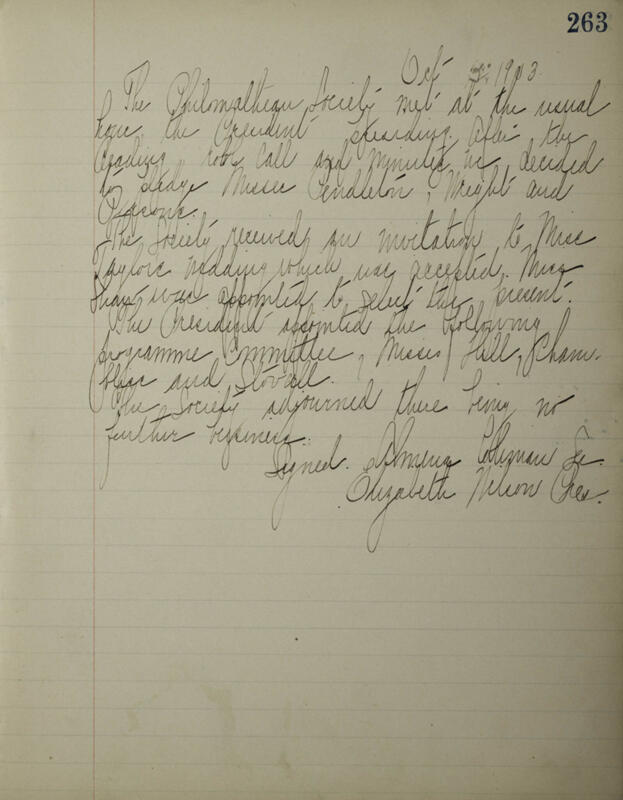 263
Oct 1903
The Philomathean Society met at the usual
hour, the President presiding. After the
reading roll call and minutes we decided
to pledge Misses Pendleton, Wright and
Parsons.
The Society received an invitation to Miss
Taylors wedding which was accepted. Miss
was appointed to select the present.
The President appointed the following
programme Committee, Misses Hill, Cham-
bliss and Stovall.
The Society adjourned there being no
further business.
Signed. Almena Coleman Sec.
Elizabeth Nelson Pres.